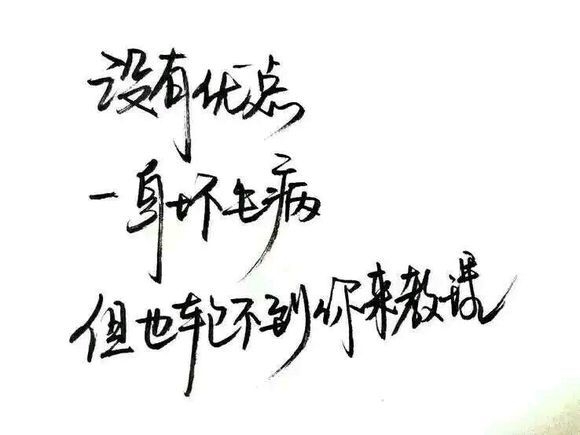 没有优点
一身坏毛病
但也轮不到你来教课